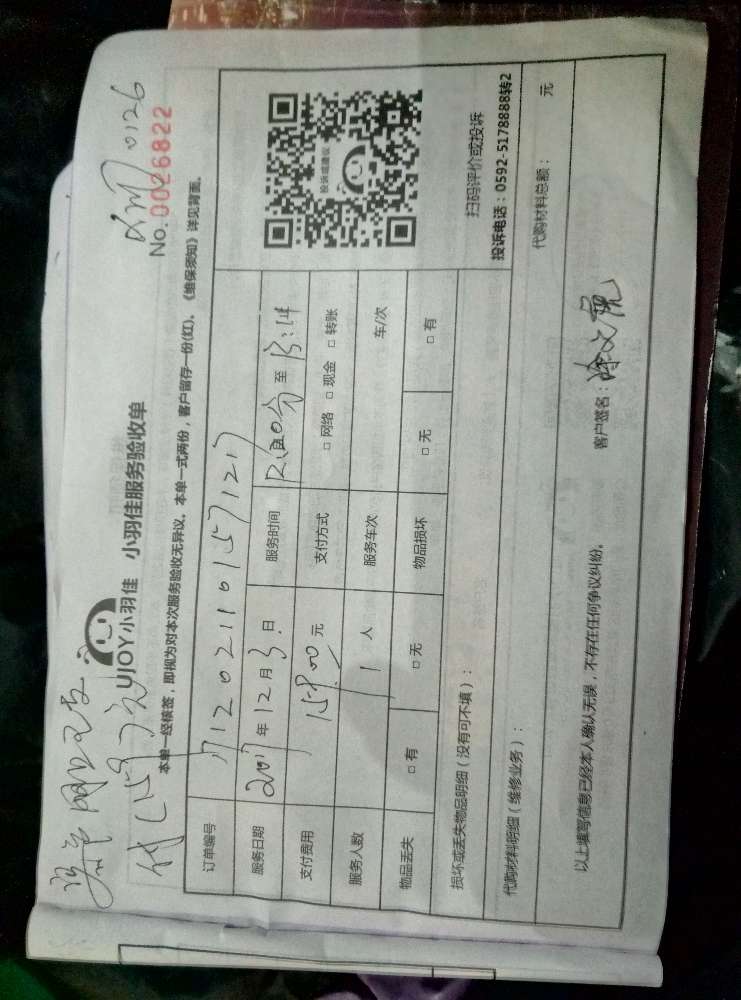 0126
UJOY小羽佳 小羽佳服务验收单
No. 0026822
本单一经核签，即视为对本次服务验收无异议。本单一式两份，客户留存一份(红)。《维保须知》详见背面。
订单编号
服务日期 2017年12月3日 服务时间 至 13:14
支付费用 元 支付方式 □网络 □现金 □转账
服务人数 1 人 服务车次 车/次
物品丢失 □有 □无 物品损坏 □无 □有
投诉或建议
扫码评价或投诉
投诉电话：0592-5178888转2
损坏或丢失物品明细（没有可不填）：
代购材料明细（维修业务）： 代购材料总额： 元
以上填写信息已经本人确认无误，不存在任何争议纠纷。 客户签名：